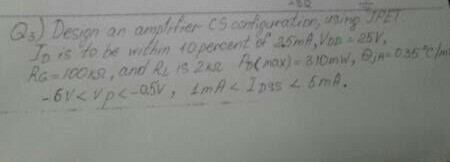 Q3) Design an amplifier CS configuration, using JFET.
ID is to be within 10 percent of 2.5mA, VDD = 25V,
RG = 100KΩ, and RL is 2KΩ PD(max) = 310mW, θjA = 0.35°C/m
-6V < Vp < -0.5V, 1mA < IDSS < 6mA.